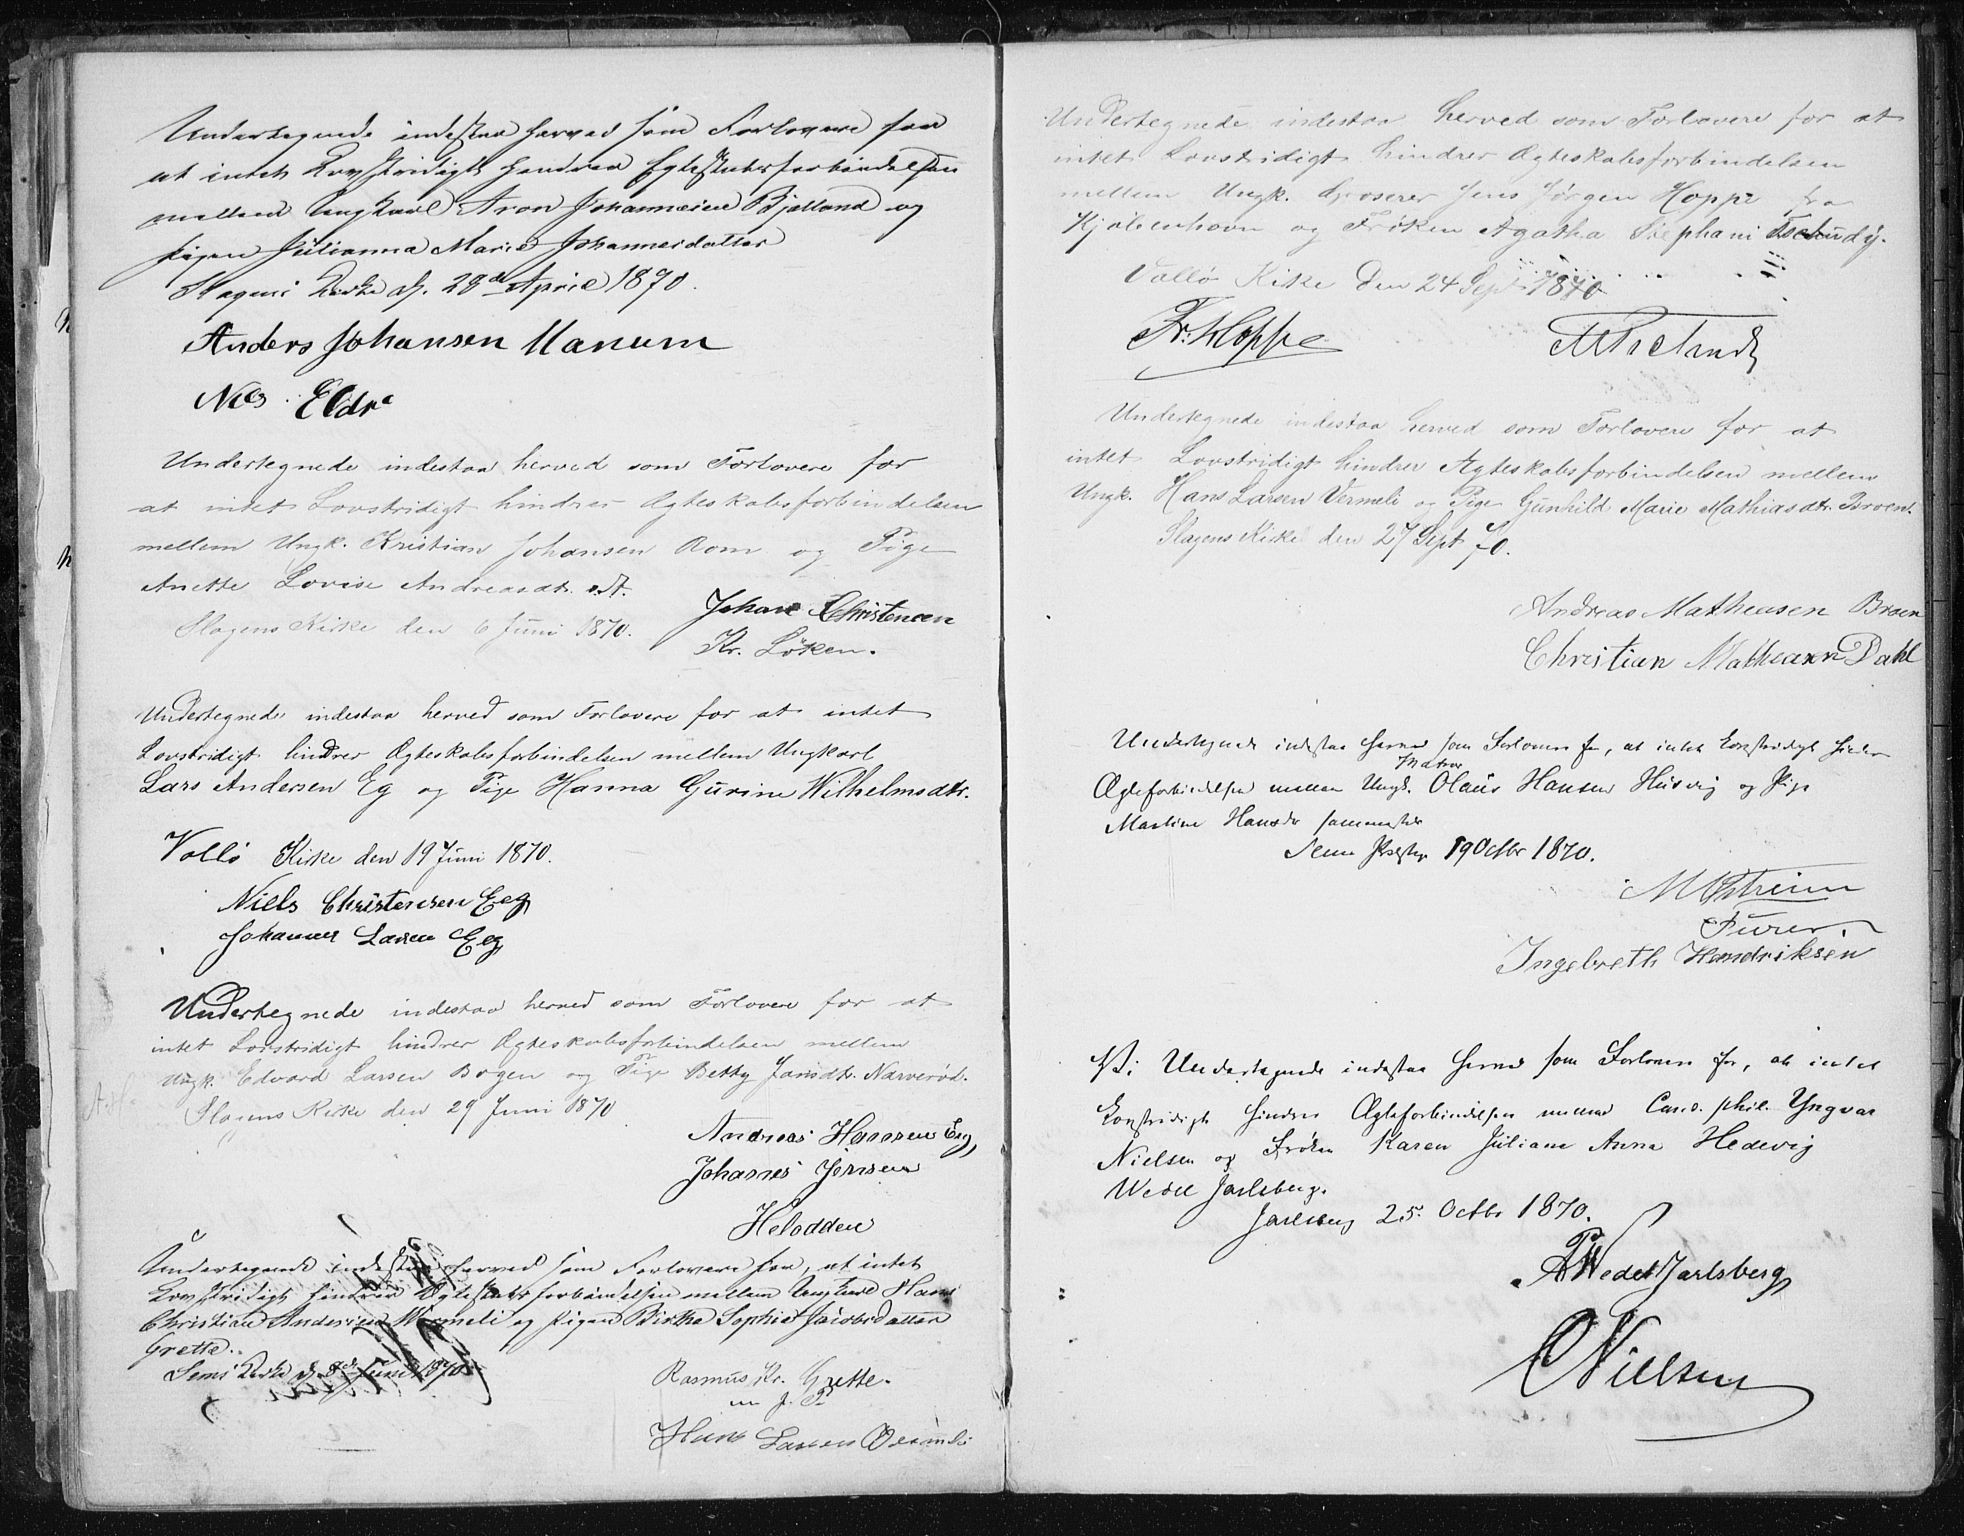 Undertegnede indestaa herved som Forlovere for
at intet Lovstridigt hindrer Egteskabsforbindelsen
mellem Ungkarl Aron Johannesen Bjelland og
Pigen Julianna Marie Johannesdatter
Slagens Kirke d. 28de April 1870.
Anders Johansen Manum
Nils Eldre
Undertegnede indestaa herved som Forlovere for
at intet Lovstridigt hindrer Ægteskabsforbindelsen
mellem Ungk. Kristian Johansen Rom og Pige
Anette Lovise Andreasdt.
Slagens Kirke den 6 Juni 1870.
Johan Christensen
Kr. Löken.
Undertegnede indestaa herved som Forlovere for at intet
Lovstridigt hindrer Ægteskabsforbindelsen mellem Ungkarl
Lars Andersen Eg og Pige Hanna Gurine Wilhelmsdtr.
Vallö Kirke den 19 Juni 1870.
Niels Christensen Eeg
Johannes Larsen Eeg
Undertegnede indestaa herved som Forlovere for at
intet Lovstridigt hindrer Ægteskabsforbindelsen mellem
Ungk. Edvard Larsen Bogen og Pige Betty Jansdt. Narverød.
Slagens Kirke den 29 Juni 1870
Andreas Hansen Eeg
Johanes Jensen
Helodden
Undertegnede indestaa herved som Forlovere for, at intet
Lovstridigt hindrer Egteskabsforbindelsen mellem Ungkarl Hans
Christian Andersen Wermeli og Pigen Birthe Sophie Jacobsdatter
Grette.
Sems Kirke d. Juni 1870
Rasmus Kr. Grette.
m. f. P.
Hans Larsen
Undertegnede indestaa herved som Forlovere for at
intet Lovstridigt hindrer Ægteskabsforbindelsen
mellem Ungk. Groserer Jens Jørgen Hoppe fra
Kjøbenhavn og Frøken Agatha Stephani Tschudy.
Vallö Kirke den 24 Sept 1870
Fr. Hoppe
Tschudy
Undertegnede indestaa herved som Forlovere for at
intet Lovstridigt hindrer Ægteskabsforbindelsen mellem
Ungk. Hans Larsen Vermeli og Pige Gunhild Marie Mathiasdtr. Broen.
Slagens Kirke den 27 Sept 70.
Andreas Matheusen Broen
Christian Dahl
Undertegnede indestaa herved som Forlovere for, at intet Lovstridigt hindrer
Matros
Ægteforbindelsen mellem Ungk. Olaus Hansen Husvig og Pige
Martine Hansdr sammesteds
Sems Præstg. 19 Octbr 1870.
M Østreim
Furer
Ingebreth Hendriksen
Vi Undertegnede indestaa herved som Forlovere for, at intet
Lovstridigt hindrer Ægteforbindelsen mellem Cand. phil. Yngvar
Nielsen og Frøken Karen Juliane Anna Hedevig
Wedel Jarlsberg.
Jarlsberg 25. Octbr 1870.
P Wedel Jarlsberg
C Nielsen